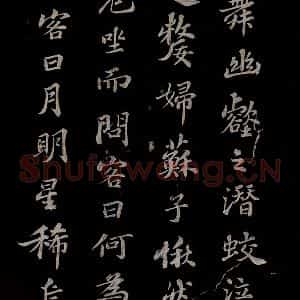 舞幽壑之潛蛟泣
之嫠婦蘇子愀然
危坐而問客曰何為
客曰月明星稀烏
Shufawang.CN